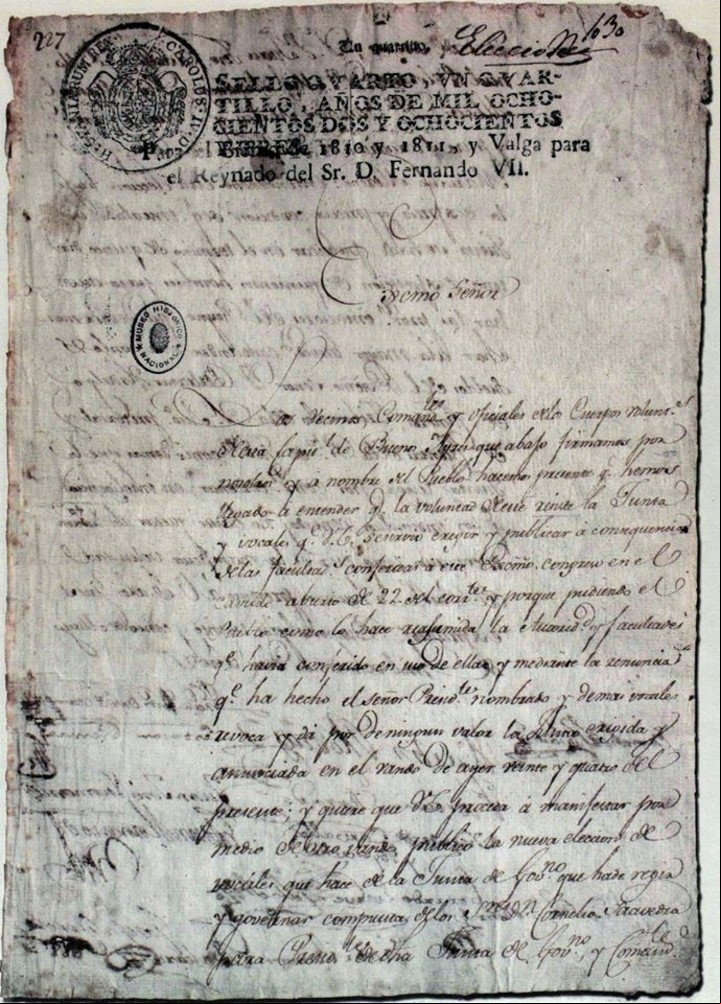 227
Un quartillo. Elecciones 1030
HISPANIARUM REX CAROLUS IV D G
SELLO QVARTO, VN QVAR-
TILLO, AÑOS DE MIL OCHO-
CIENTOS DOS Y OCHOCIENTOS
TRES.
Para el Bienio de 1810 y 1811, y Valga para
el Reynado del Sr. D. Fernando VII.
Exmô Señor
MUSEO HISTORICO NACIONAL
Los Vecinos Comand.tes y oficiales de los Cuerpos volunt.s
de esta Capit.l de Buenos Ayres que abajo firmamos por
nosotros y a nombre del Pueblo hacemos presente q.e hemos
llegado a entender q.e la voluntad de este resiste la Junta
y vocales q.e V.E. se sirvio erigir y publicar à consequencia
de las facultad.s conferidas à este Exmô. congreso en el
Cavildo abierto de 22 del corr.te y porque pudiendo el
Pueblo como lo hace reasumida la autorid.d y facultades
q.e havia conferido en uso de ellas y mediante la renuncia
q.e ha hecho el señor Presid.te nombrado y demas vocales
revoca y dá por de ningun valor la Junta erigida y
anunciada en el vando de ayer veinte y quatro del
presente; y quiere que V.E. proceda à manifestar por
medio de otro vando publico la nueva eleccion de
vocales que hace de la Junta de Gov.no que hade regir
y governar compuesta de los S.res D.n Cornelio Saavedra
para Presid.te de dha Junta de Gov.no, y Comand.te